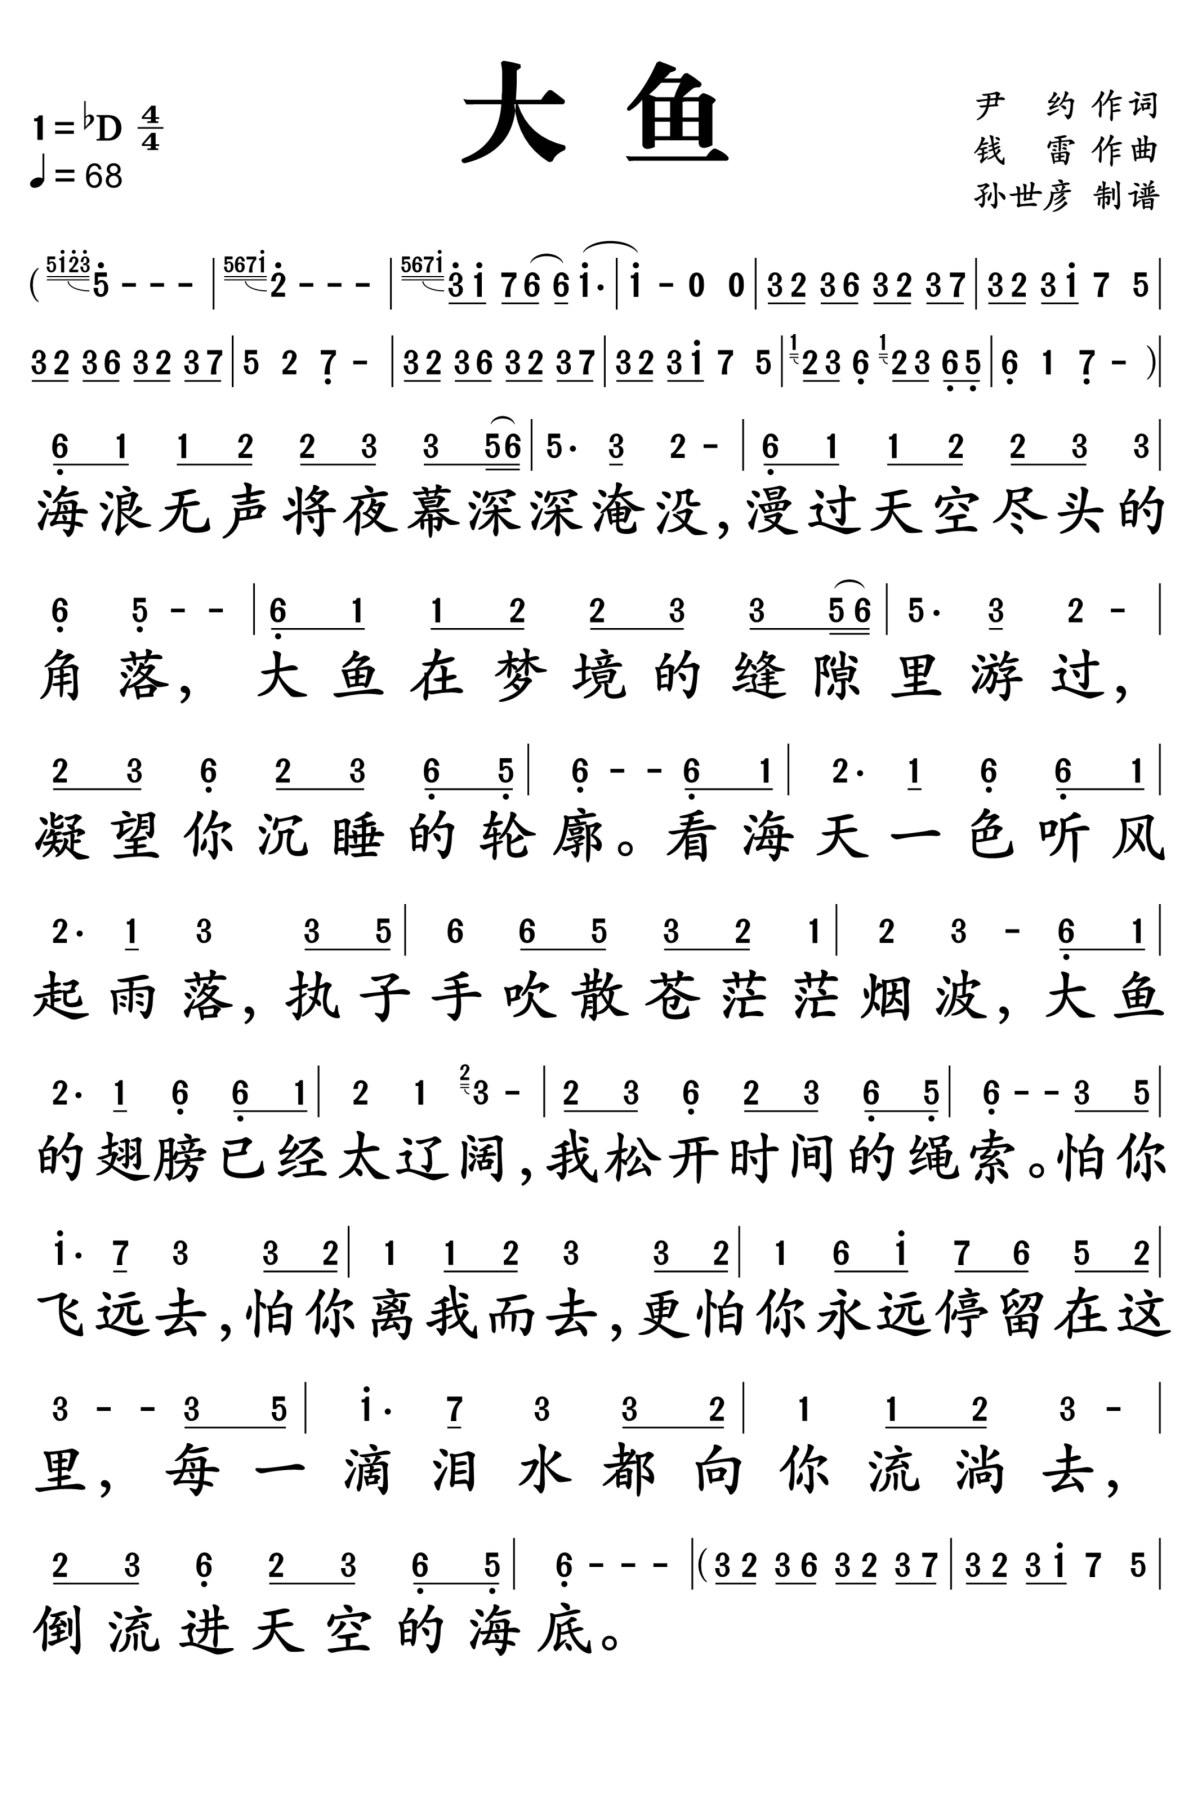 大鱼
1=♭D 4/4
♩=68
尹 约 作词
钱 雷 作曲
孙世彦 制谱
( 5123 5 - - - | 5671 2 - - - | 5671 3 1 7 6 6 1· | 1 - 0 0 | 3 2 3 6 3 2 3 7 | 3 2 3 1 7 5 |
3 2 3 6 3 2 3 7 | 5 2 7 - | 3 2 3 6 3 2 3 7 | 3 2 3 1 7 5 | 1 2 3 6 1 2 3 6 5 | 6 1 7 - ) |
6 1 1 2 2 3 3 5 6 | 5· 3 2 - | 6 1 1 2 2 3 3 |
海浪无声将夜幕深深淹没,漫过天空尽头的
6 5 - - | 6 1 1 2 2 3 3 5 6 | 5· 3 2 - |
角落,大鱼在梦境的缝隙里游过,
2 3 6 2 3 6 5 | 6 - - 6 1 | 2· 1 6 6 1 |
凝望你沉睡的轮廓。看海天一色听风
2· 1 3 3 5 | 6 6 5 3 2 1 | 2 3 - 6 1 |
起雨落,执子手吹散苍茫茫烟波,大鱼
2· 1 6 6 1 | 2 1 2 3 - | 2 3 6 2 3 6 5 | 6 - - 3 5 |
的翅膀已经太辽阔,我松开时间的绳索。怕你
1· 7 3 3 2 | 1 1 2 3 3 2 | 1 6 1 7 6 5 2 |
飞远去,怕你离我而去,更怕你永远停留在这
3 - - 3 5 | 1· 7 3 3 2 | 1 1 2 3 - |
里,每一滴泪水都向你流淌去,
2 3 6 2 3 6 5 | 6 - - - | ( 3 2 3 6 3 2 3 7 | 3 2 3 1 7 5 |
倒流进天空的海底。